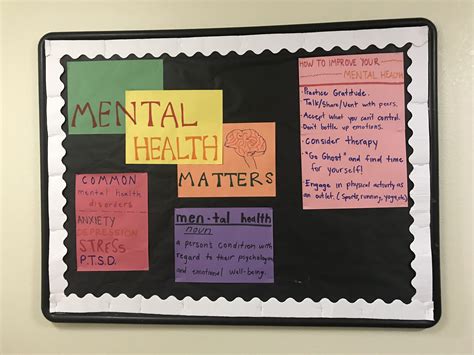 MENTAL
HEALTH
MATTERS
COMMON
mental health
disorders
ANXIETY
DEPRESSION
STRESS
P.T.S.D.
men-tal health
noun
a person's condition with
regard to their psychological
and emotional well-being.
HOW TO IMPROVE YOUR
MENTAL HEALTH
• Practice Gratitude.
Talk/Share/Vent with peers.
• Accept what you can't control.
Don't bottle up emotions.
• consider therapy
• "Go Ghost" and find time
for yourself!
• Engage in physical activity as
an outlet. (Sports, running, yoga, etc)